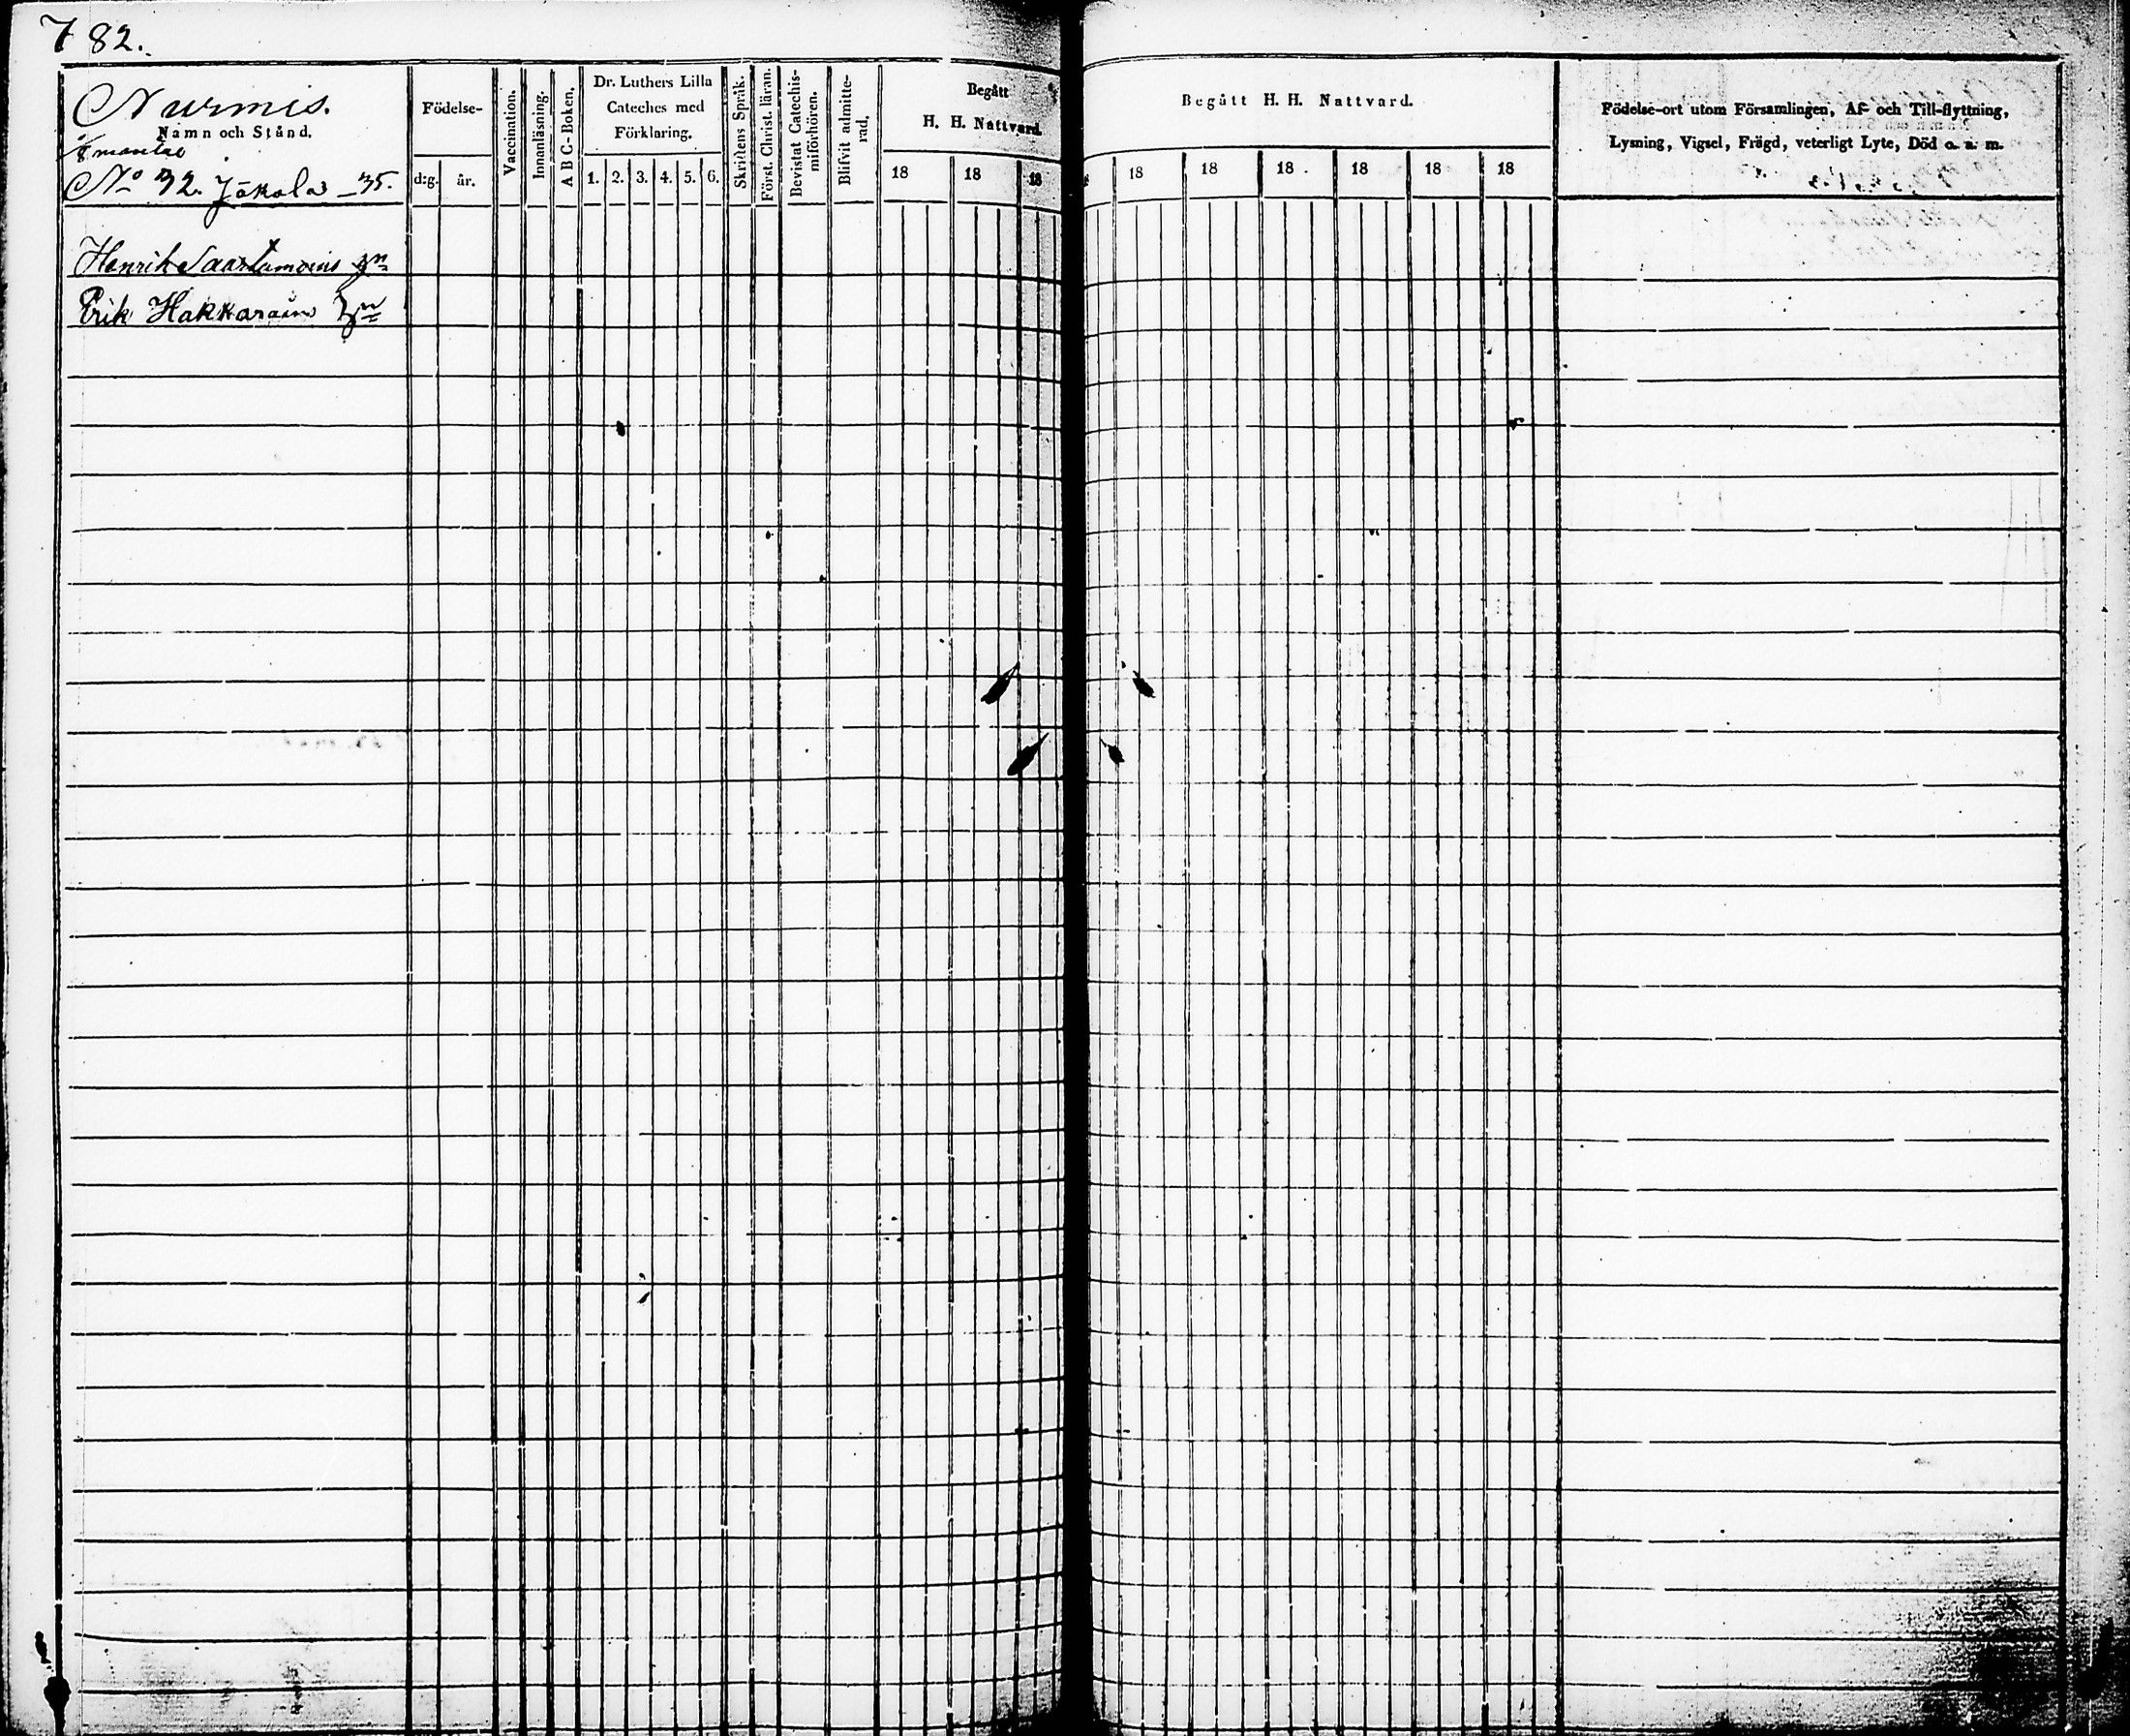 782.
Nurmis.
Namn och Stånd.
mantal
No 32. Jokola 35.
Födelse-
d:g. år.
Vaccination.
Innanläsning.
A B C-Boken.
Dr. Luthers Lilla
Cateches med
Förklaring.
1. 2. 3. 4. 5. 6.
Skriftens Språk.
Först. Christ. läran.
Bevistat Catechis-
miförhören.
Blifvit admitte-
rad.
Begått
H. H. Nattvard.
18 18 18
Begått H. H. Nattvard.
18 18 18 18 18 18
Födelse-ort utom Församlingen, Af- och Till-flyttning,
Lysning, Vigsel, Frägd, veterligt Lyte, Död o. a. m.
Henrik
Erik Hakkarain